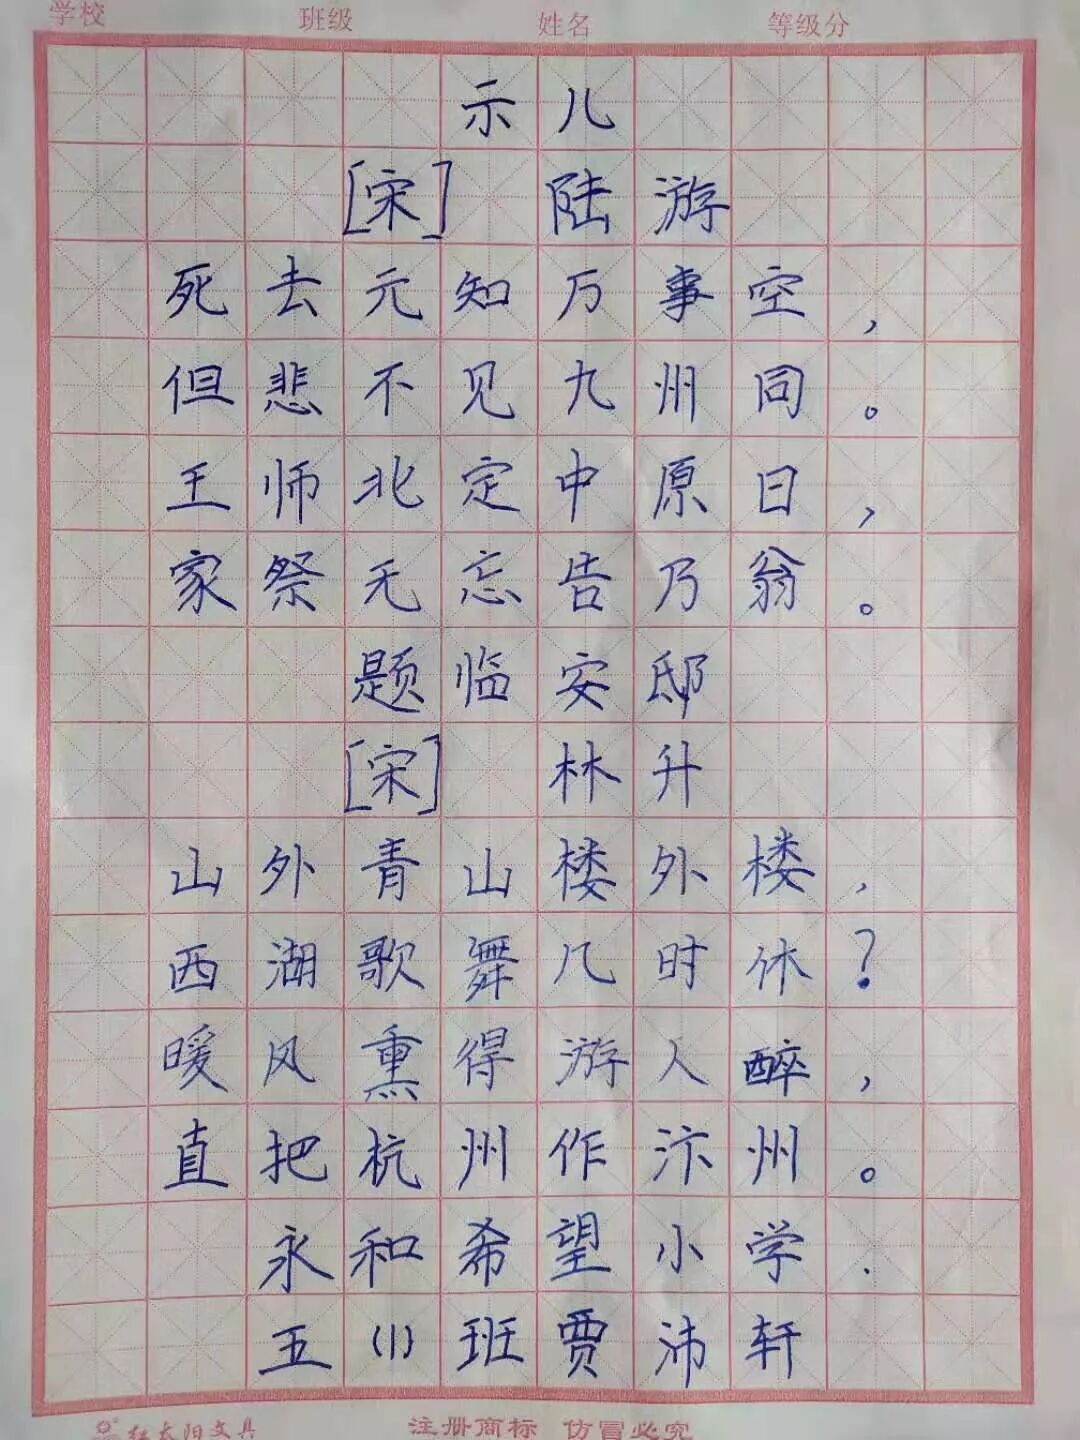 学校 班级 姓名 等级分
示儿
[宋] 陆游
死去元知万事空，
但悲不见九州同。
王师北定中原日，
家祭无忘告乃翁。
题临安邸
[宋] 林升
山外青山楼外楼，
西湖歌舞几时休？
暖风熏得游人醉，
直把杭州作汴州。
永和希望小学.
五(1)班贾沛轩
红太阳文具 注册商标 仿冒必究